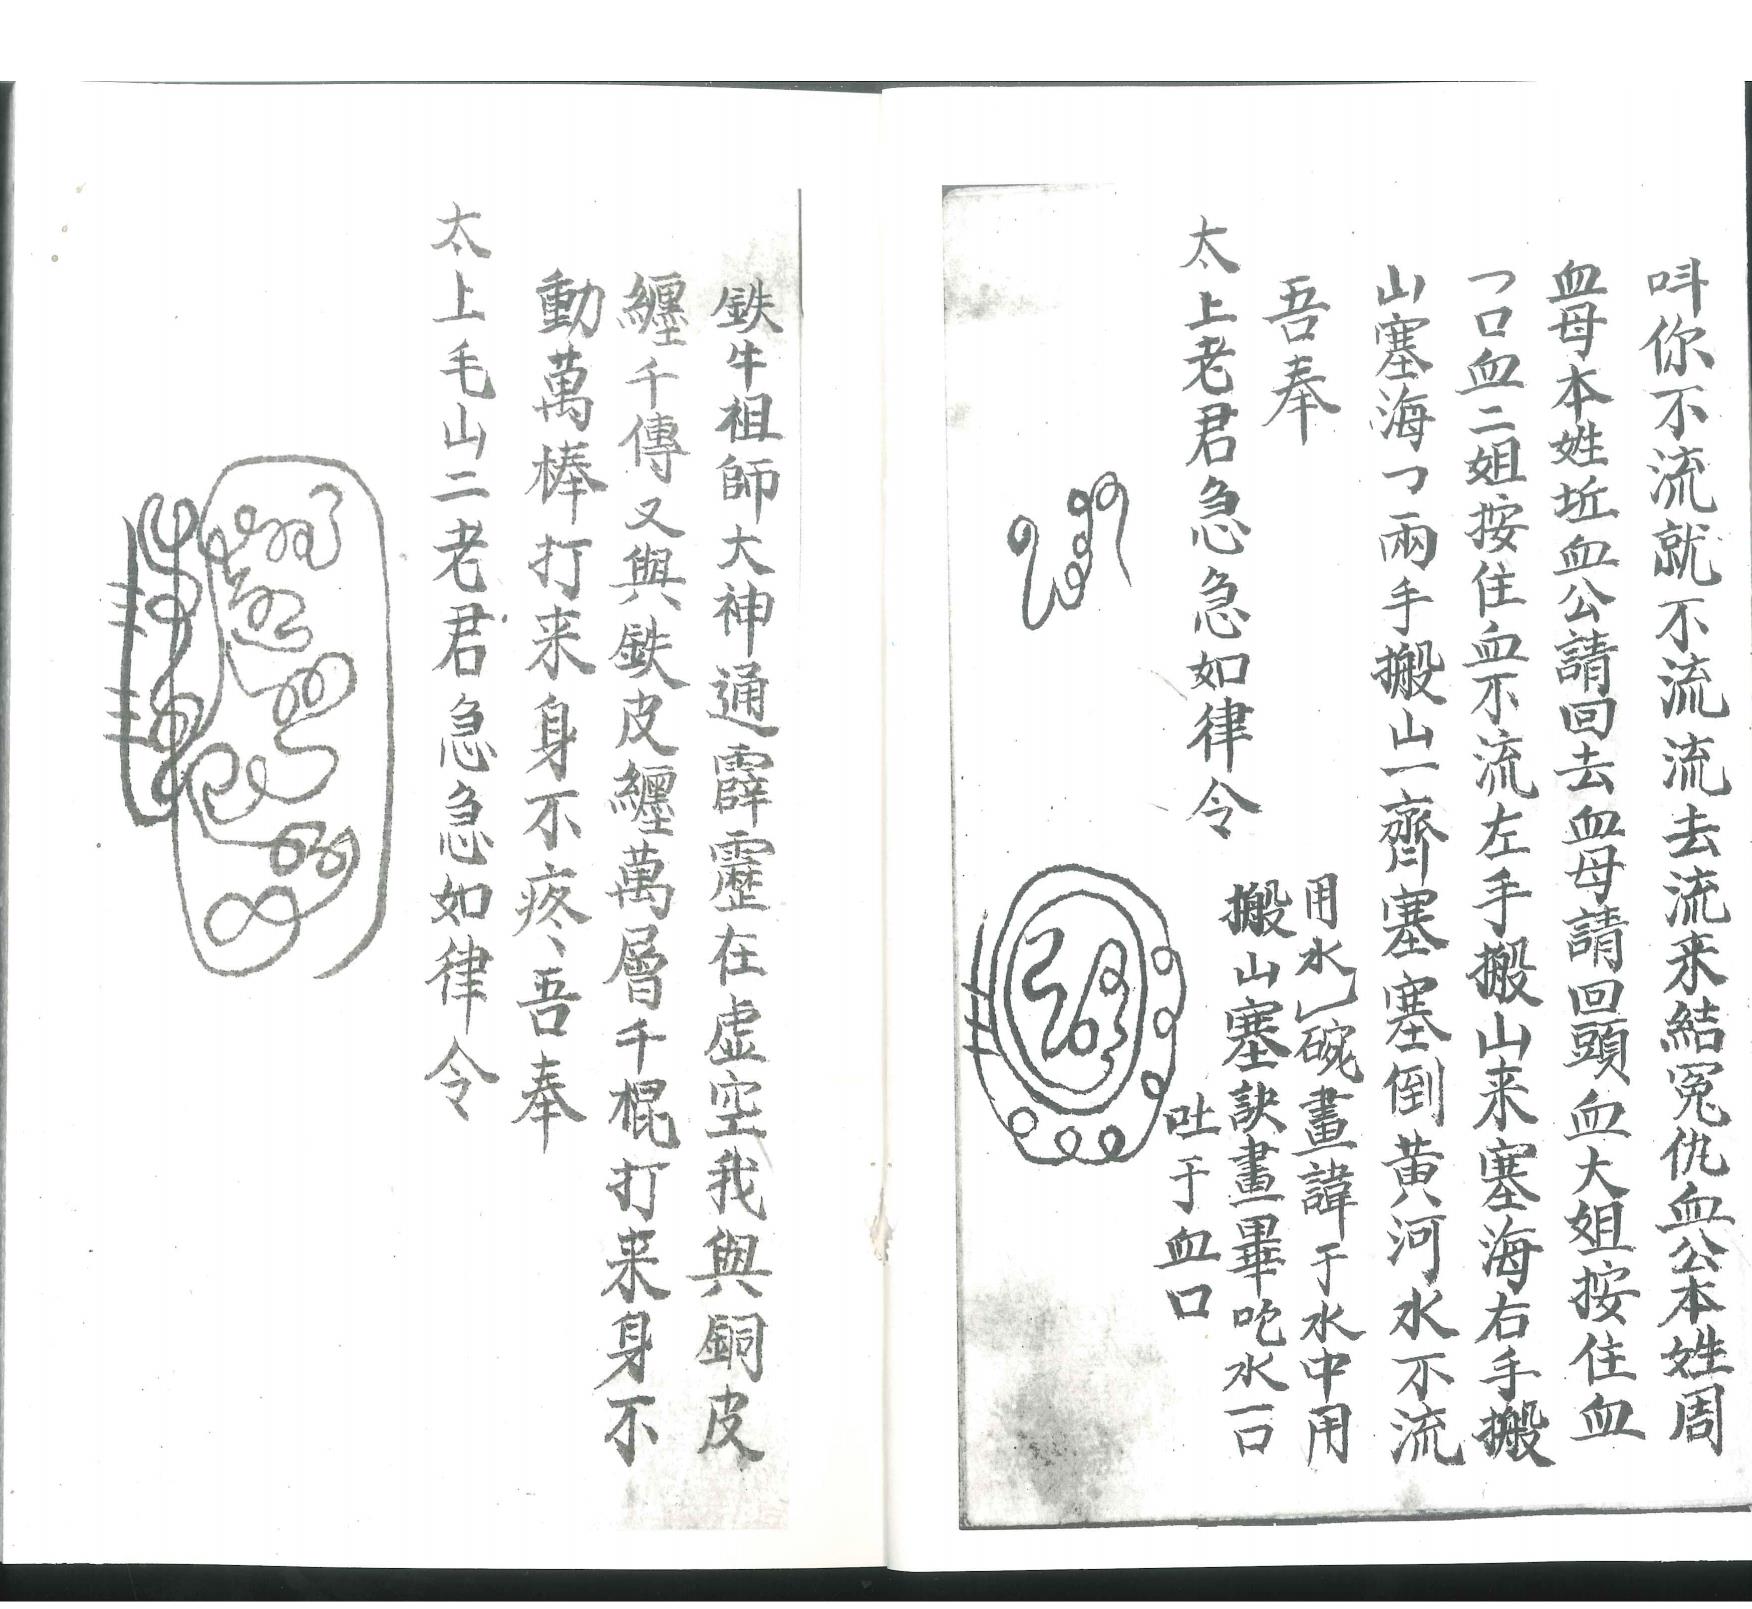 呌你不流就不流流去流来結冤仇血公本姓周
血母本姓坵血公請回去血母請回頭血大姐按住血
㇇口血二姐按住血不流左手搬山来塞海右手搬
山塞海㇇兩手搬山一齊塞塞倒黄河水不流
吾奉
太上老君急急如律令
用水乚碗畫諱于水中用
搬山塞訣畫畢吃水一口
吐于血口
鉄牛祖師大神通霹靂在虚空我與銅皮
纒千傳又與鉄皮纒萬層千棍打来身不
動萬棒打来身不疼、吾奉
太上毛山二老君急急如律令